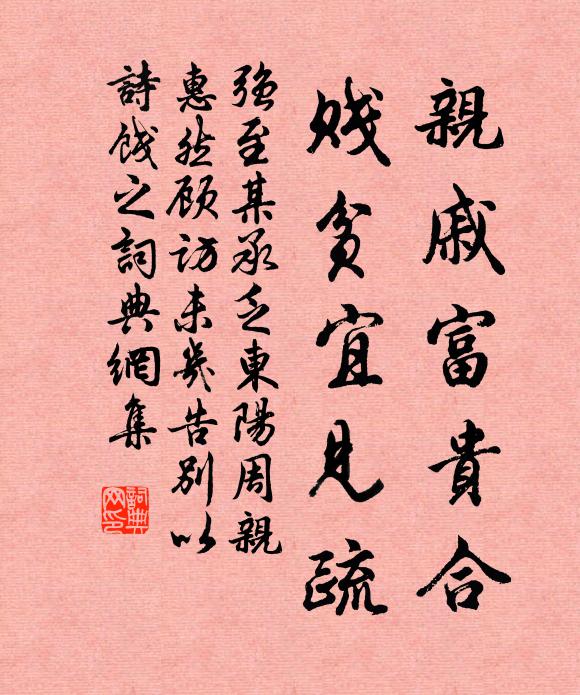 親戚富貴合
賤貧宜見疏
强至某承乏東陽周親
惠然顾访未幾告別以
詩餞之詞典網集
詞典网印